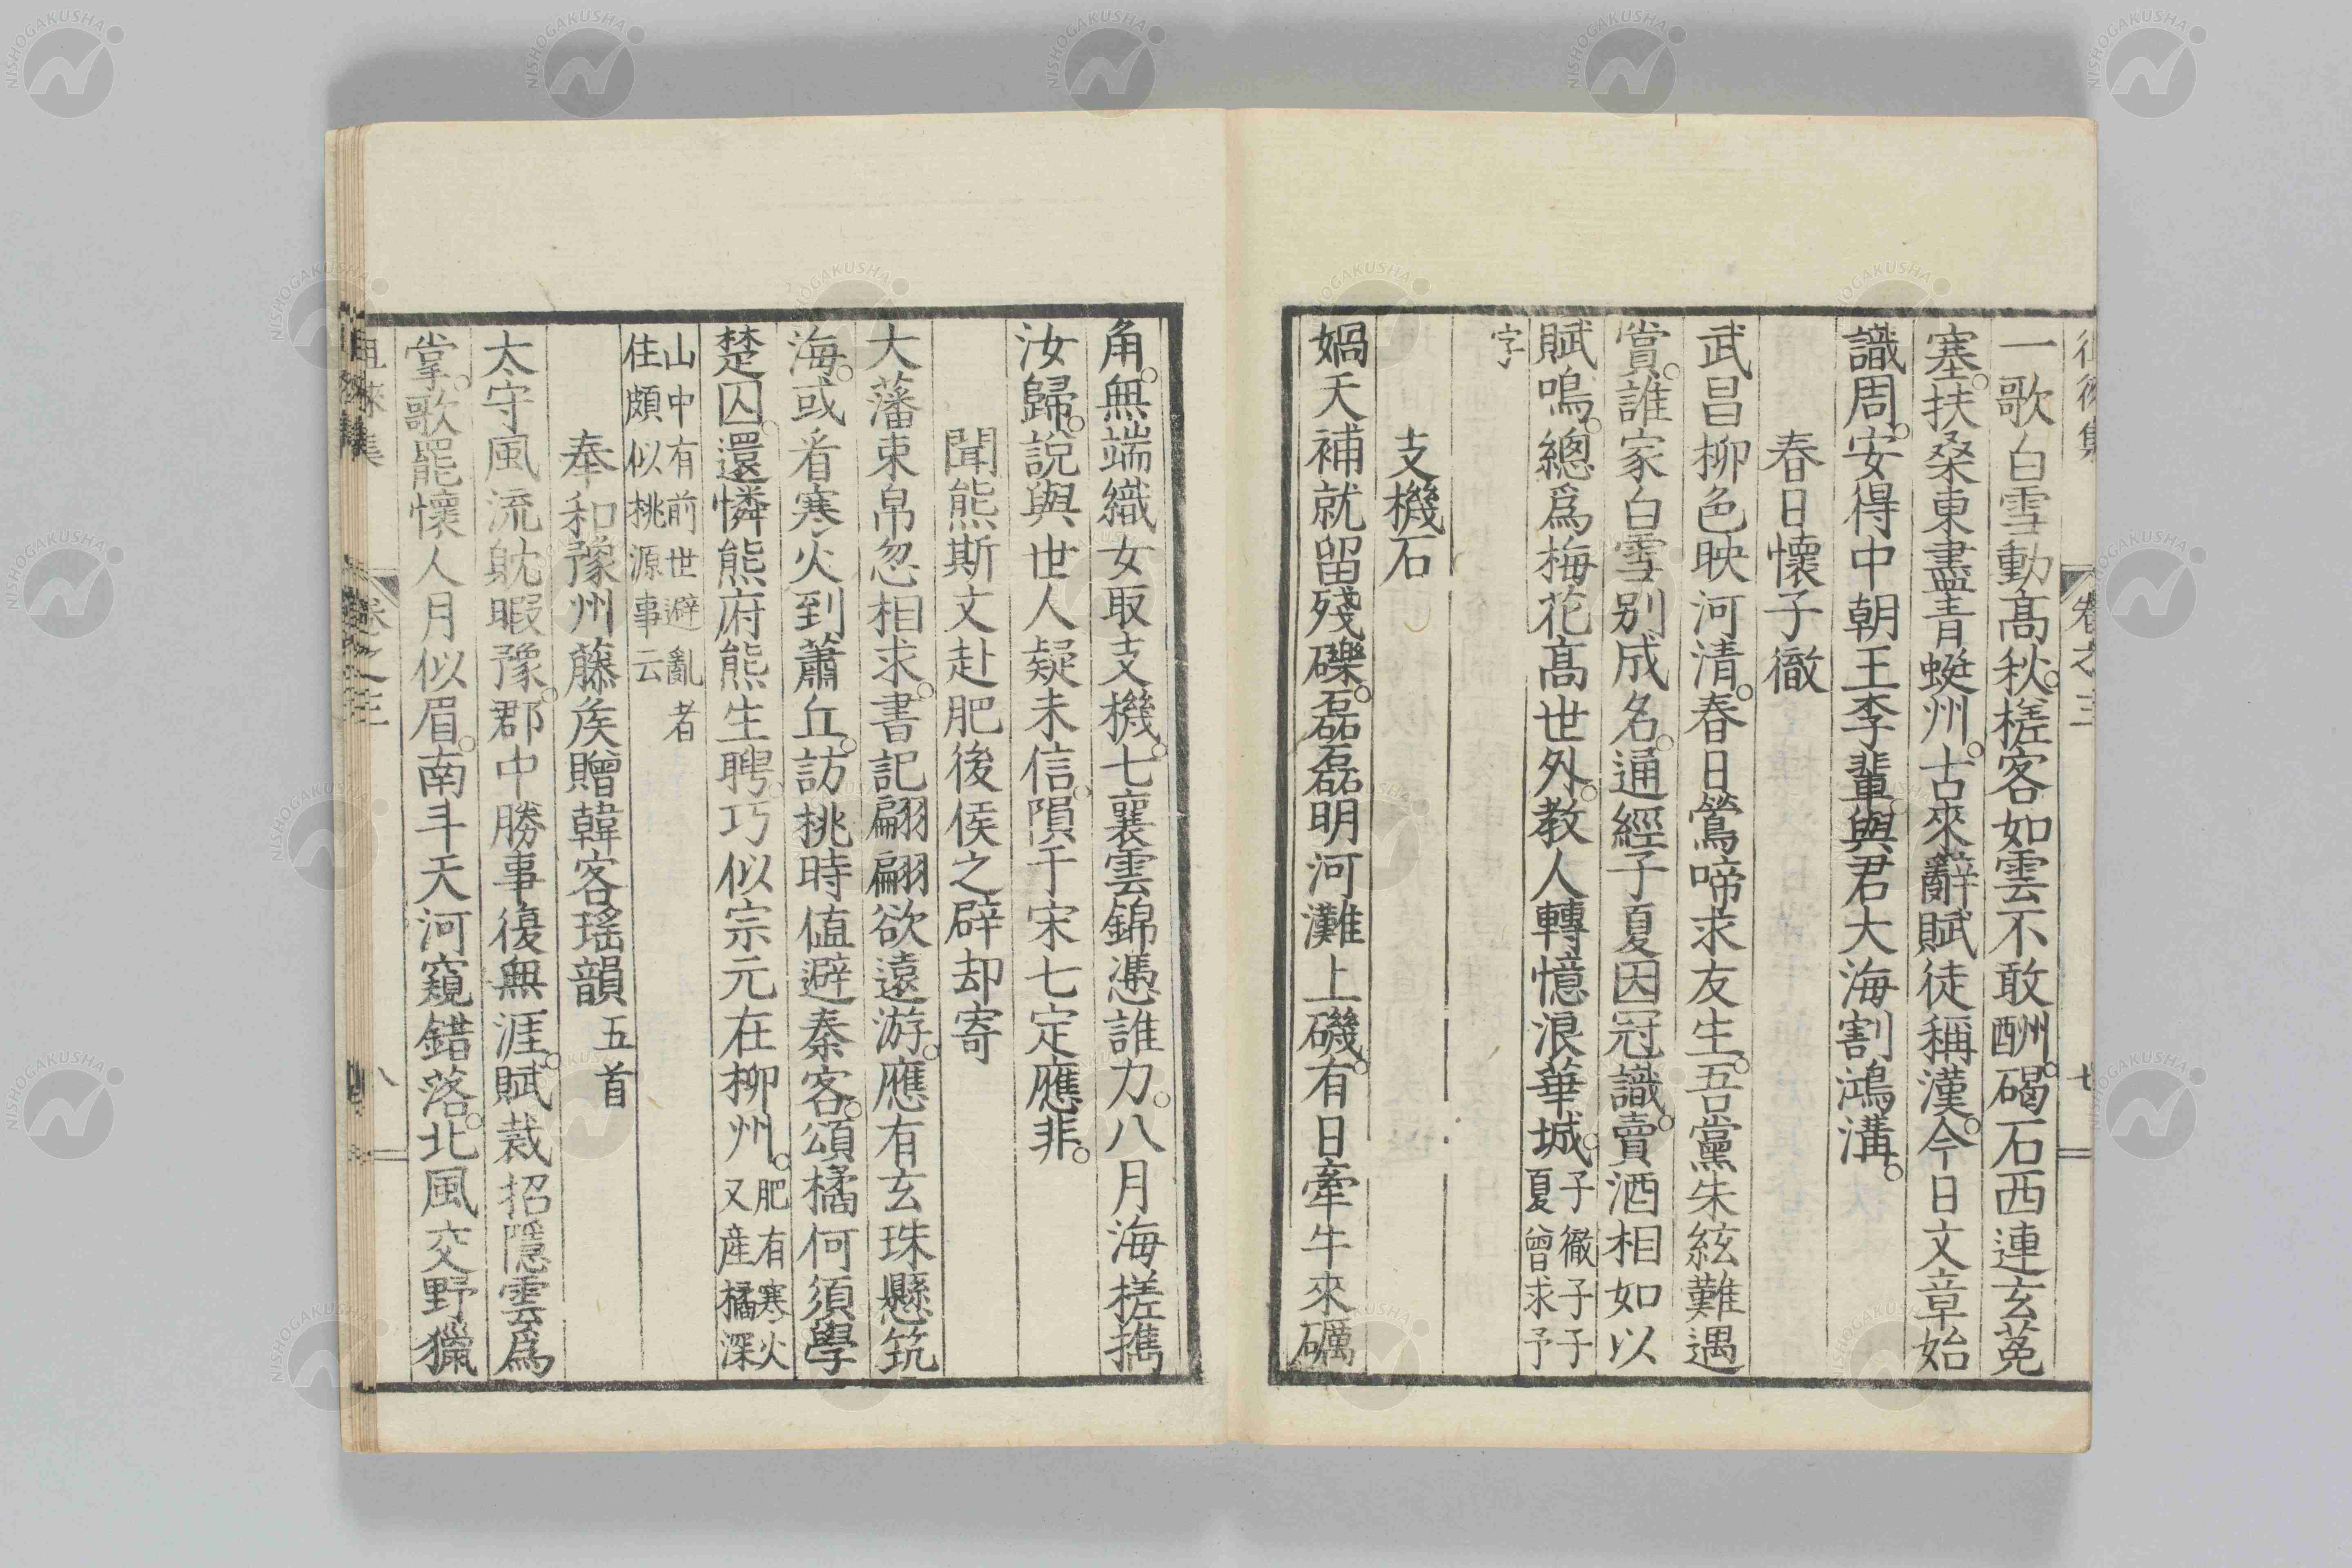 卷之三
七
一歌白雪動高秋。槎客如雲不敢酬。碣石西連玄菟
塞。扶桑東盡青蜓州。古來辭賦徒稱漢。今日文章始
識周。安得中朝王李輩。與君大海割鴻溝。
春日懷子徹
武昌柳色映河清。春日鶯啼求友生。吾黨朱絃難遇
賞。誰家白雪別成名。通經子夏因冠識。賣酒相如以
賦鳴。總爲梅花高世外。教人轉憶浪華城。子徹子子
夏曾求予
字
支機石
媧天補就留殘礫。磊磊明河灘上磯。有日牽牛來礪
角。無端織女取支機。七襄雲錦憑誰力。八月海槎攜
汝歸。說與世人疑未信。隕于宋七定應非。
聞熊斯文赴肥後侯之辟却寄
大藩束帛忽相求。書記翩翩欲遠游。應有玄珠懸筑
海。或看寒火到蕭丘。訪桃時値避秦客。頌橘何須學
楚囚。還憐熊府熊生聘。巧似宗元在柳州。肥有寒火
又産橘深
山中有前世避亂者
住頗似桃源事云
奉和豫州藤矦贈韓客瑤韻五首
太守風流躭暇豫。郡中勝事復無涯。賦裁招隱雲爲
掌。歌罷懷人月似眉。南斗天河窺錯落。北風交野獵
徠集
卷之三
八
NISHOGAKUSHA